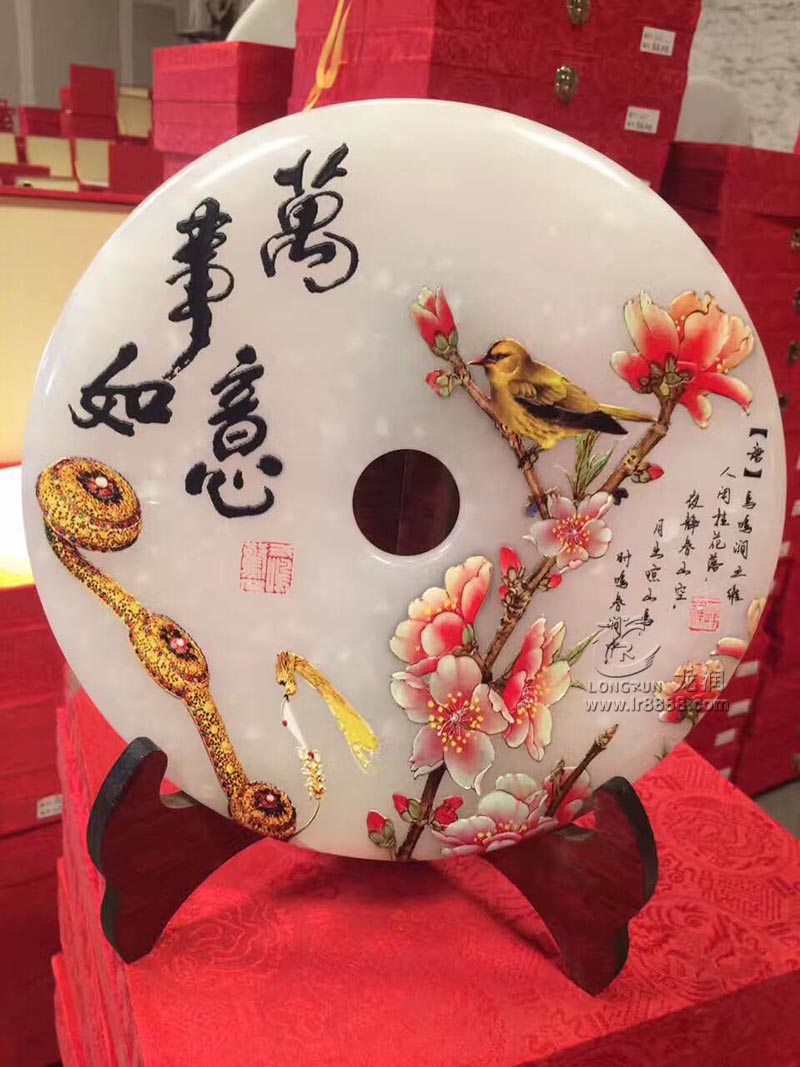 萬
事
如
意
【唐】鳥鳴涧王維
人闲桂花落,
夜静春山空.
月出惊山鳥,
时鳴春涧中.
LONGRUN 龙润
www.lr8888.com